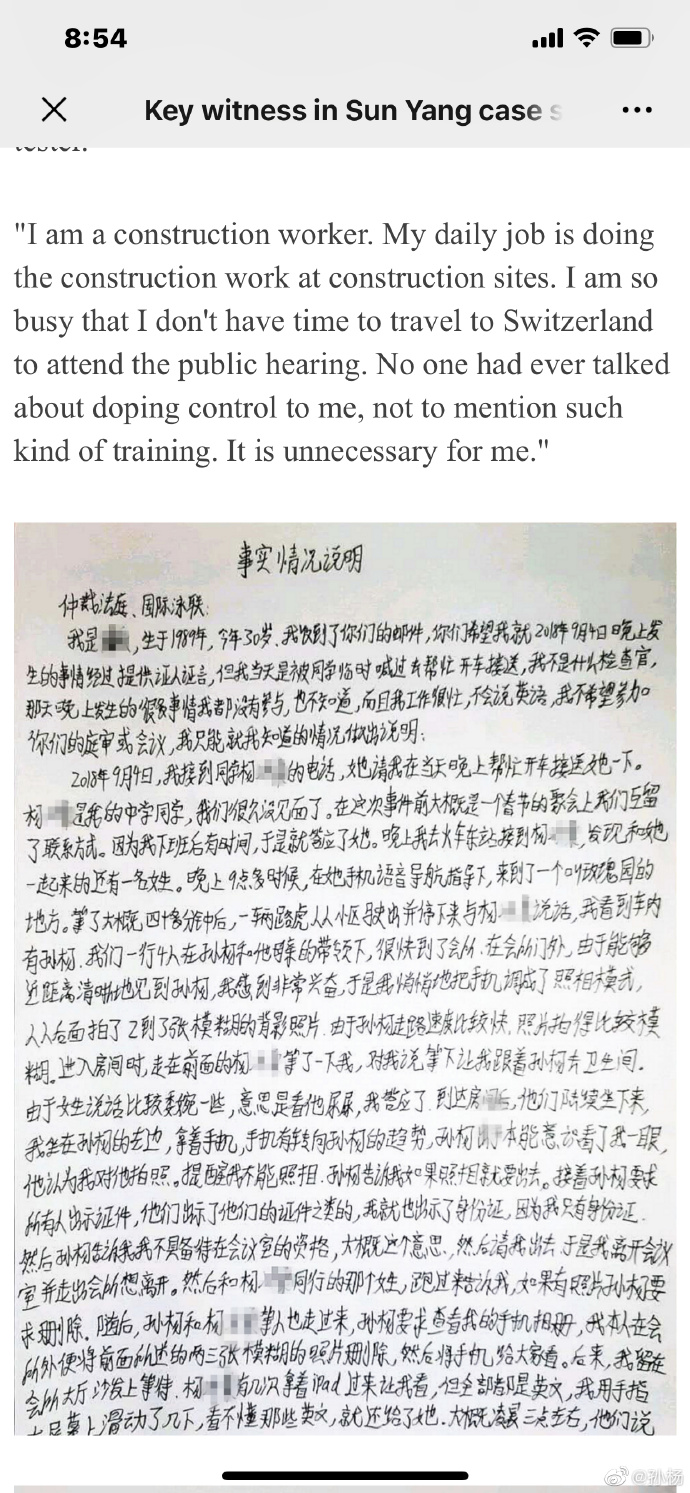 8:54
Key witness in Sun Yang case s
tester.
"I am a construction worker. My daily job is doing
the construction work at construction sites. I am so
busy that I don't have time to travel to Switzerland
to attend the public hearing. No one had ever talked
about doping control to me, not to mention such
kind of training. It is unnecessary for me."
事实情况说明
仲裁法庭、国际泳联:
我是 ,生于1989年,今年30岁.我收到了你们的邮件,你们希望我就2018年9月4日晚上发
生的事情经过提供证人证言,但我当天是被同学临时喊过去帮忙开车接送,我不是什么检查官,
那天晚上发生的很多事情我都没有参与,也不知道,而且我工作很忙,不会说英语,我不希望参加
你们的庭审或会议,我只能就我知道的情况做出说明:
2018年9月4日,我接到同学杨 的电话,她请我在当天晚上帮忙开车接送她一下。
杨 是我的中学同学,我们很久没见面了。在这次事件前大概是一个春节的聚会上我们互留
了联系方式。因为我下班后有时间,于是就答应了她。晚上我去火车东站接到杨 ,发现和她
一起来的还有一名女生。晚上9点多时候,在她手机语音导航指导下,来到了一个叫玫瑰园的
地方。等了大概四十多分钟后,一辆路虎从小区驶出并停下来与杨 说话,我看到车内
有孙杨.我们一行4人在孙杨和他母亲的带领下,很快到了会所.在会所门外,由于能够
近距离清晰地见到孙杨,我感到非常兴奋,于是我悄悄地把手机调成了照相模式,
从后面拍了2到3张模糊的背影照片.由于孙杨走路速度比较快,照片拍得比较模
糊.进入房间时,走在前面的杨 等了一下我,对我说等下让我跟着孙杨去卫生间.
由于女生说话比较委婉一些,意思是看他尿尿,我答应了.到达房间后,他们陆续坐下来,
我坐在孙杨的左边,拿着手机,手机有转向孙杨的趋势,孙杨 本能意识看了我一眼,
他认为我对他拍照。提醒我不能照相.孙杨告诉我如果照相就要出去。接着孙杨要求
所有人出示证件,他们出示了他们的证件之类的,我就也出示了身份证,因为我只有身份证.
然后孙杨告诉我我不具备待在会议室的资格,大概这个意思,然后请我出去.于是我离开会议
室并走出会所想离开。然后和杨 同行的那个女生,跑过来告诉我,如果有照片孙杨要
求删除.随后,孙杨和杨 等人也走过来,孙杨要求查看我的手机相册,我本人在会
所外便将前面所述的两三张模糊的照片删除,然后将手机给大家看。后来,我留在
会所大厅沙发上等待.杨 有几次拿着iPad过来让我看,但全部都是英文,我用手指
在屏幕上滑动了几下,看不懂那些英文,就还给了她.大概凌晨三点左右,他们说
@孙杨